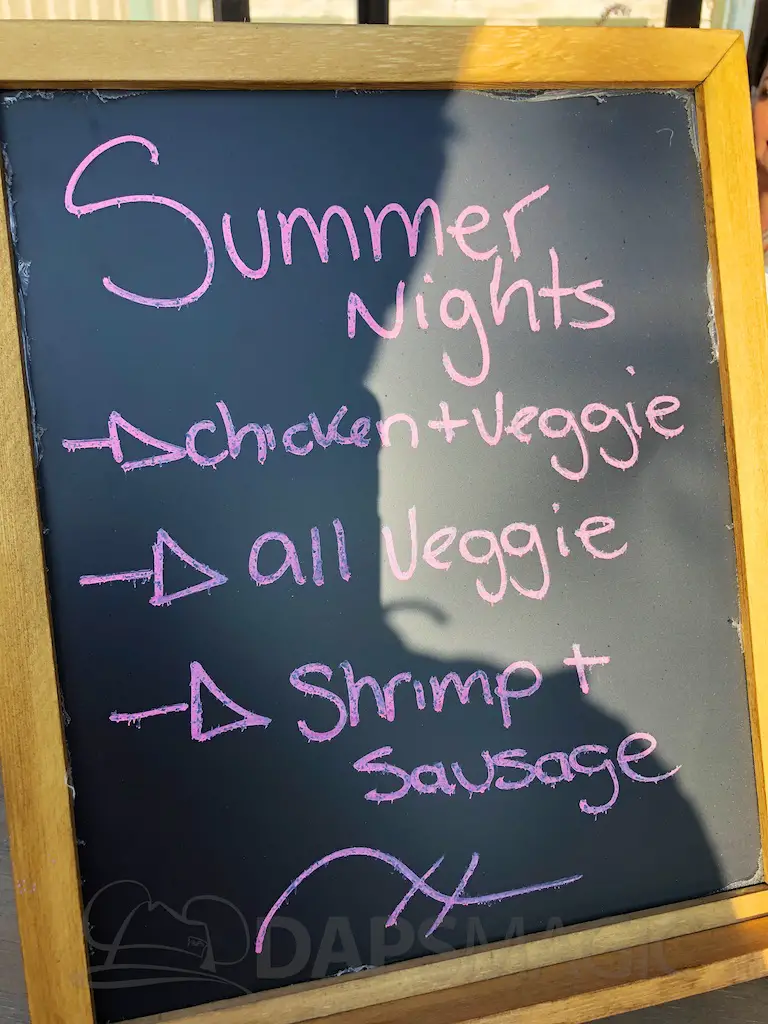 Summer
Nights
chicken + Veggie
all Veggie
Shrimp +
Sausage
DAPSMAGIC